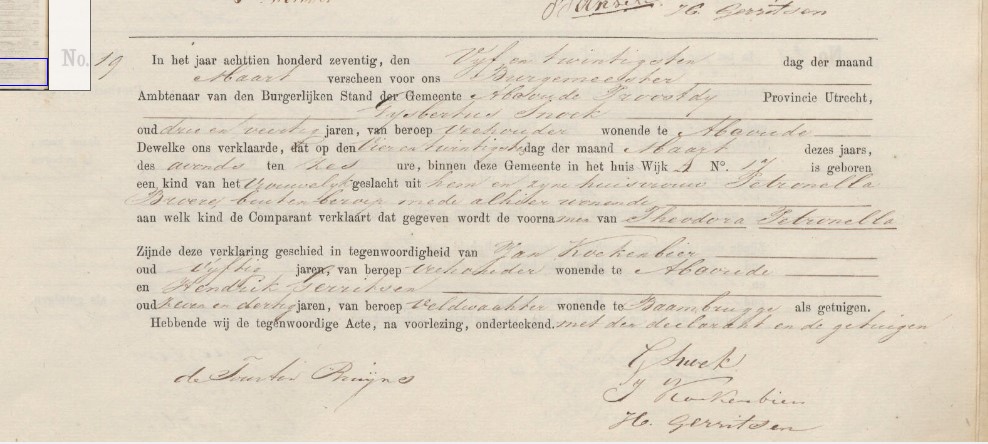 H. Gerritsen
No. 19
In het jaar achttien honderd zeventig, den Vijf en twintigsten dag der maand
Maart verscheen voor ons Burgemeester
Ambtenaar van den Burgerlijken Stand der Gemeente Abcoude Proostdy Provincie Utrecht,
Gysbertus Snoek
oud drie en veertig jaren, van beroep veehouder wonende te Abcoude
Dewelke ons verklaarde, dat op den Vier en twintigste dag der maand Maart dezes jaars,
des avonds ten zes ure, binnen deze Gemeente in het huis Wijk N°. 17 is geboren
een kind van het Vrouwelijk geslacht uit hem en zyne huisvrouw Petronella
Broerz buiten beroep mede alhier wonende
aan welk kind de Comparant verklaart dat gegeven wordt de voornamen van Theodora Petronella
Zijnde deze verklaring geschied in tegenwoordigheid van Jan Kockenbier
oud vyftig jaren, van beroep veehouder wonende te Abcoude
en Hendrik Gerritsen
oud zeven en dertig jaren, van beroep Veldwachter wonende te Baambrugge als getuigen.
Hebbende wij de tegenwoordige Acte, na voorlezing, onderteekend. met den declarant en de getuigen
G Snoek
J Kockenbier
H. Gerritsen